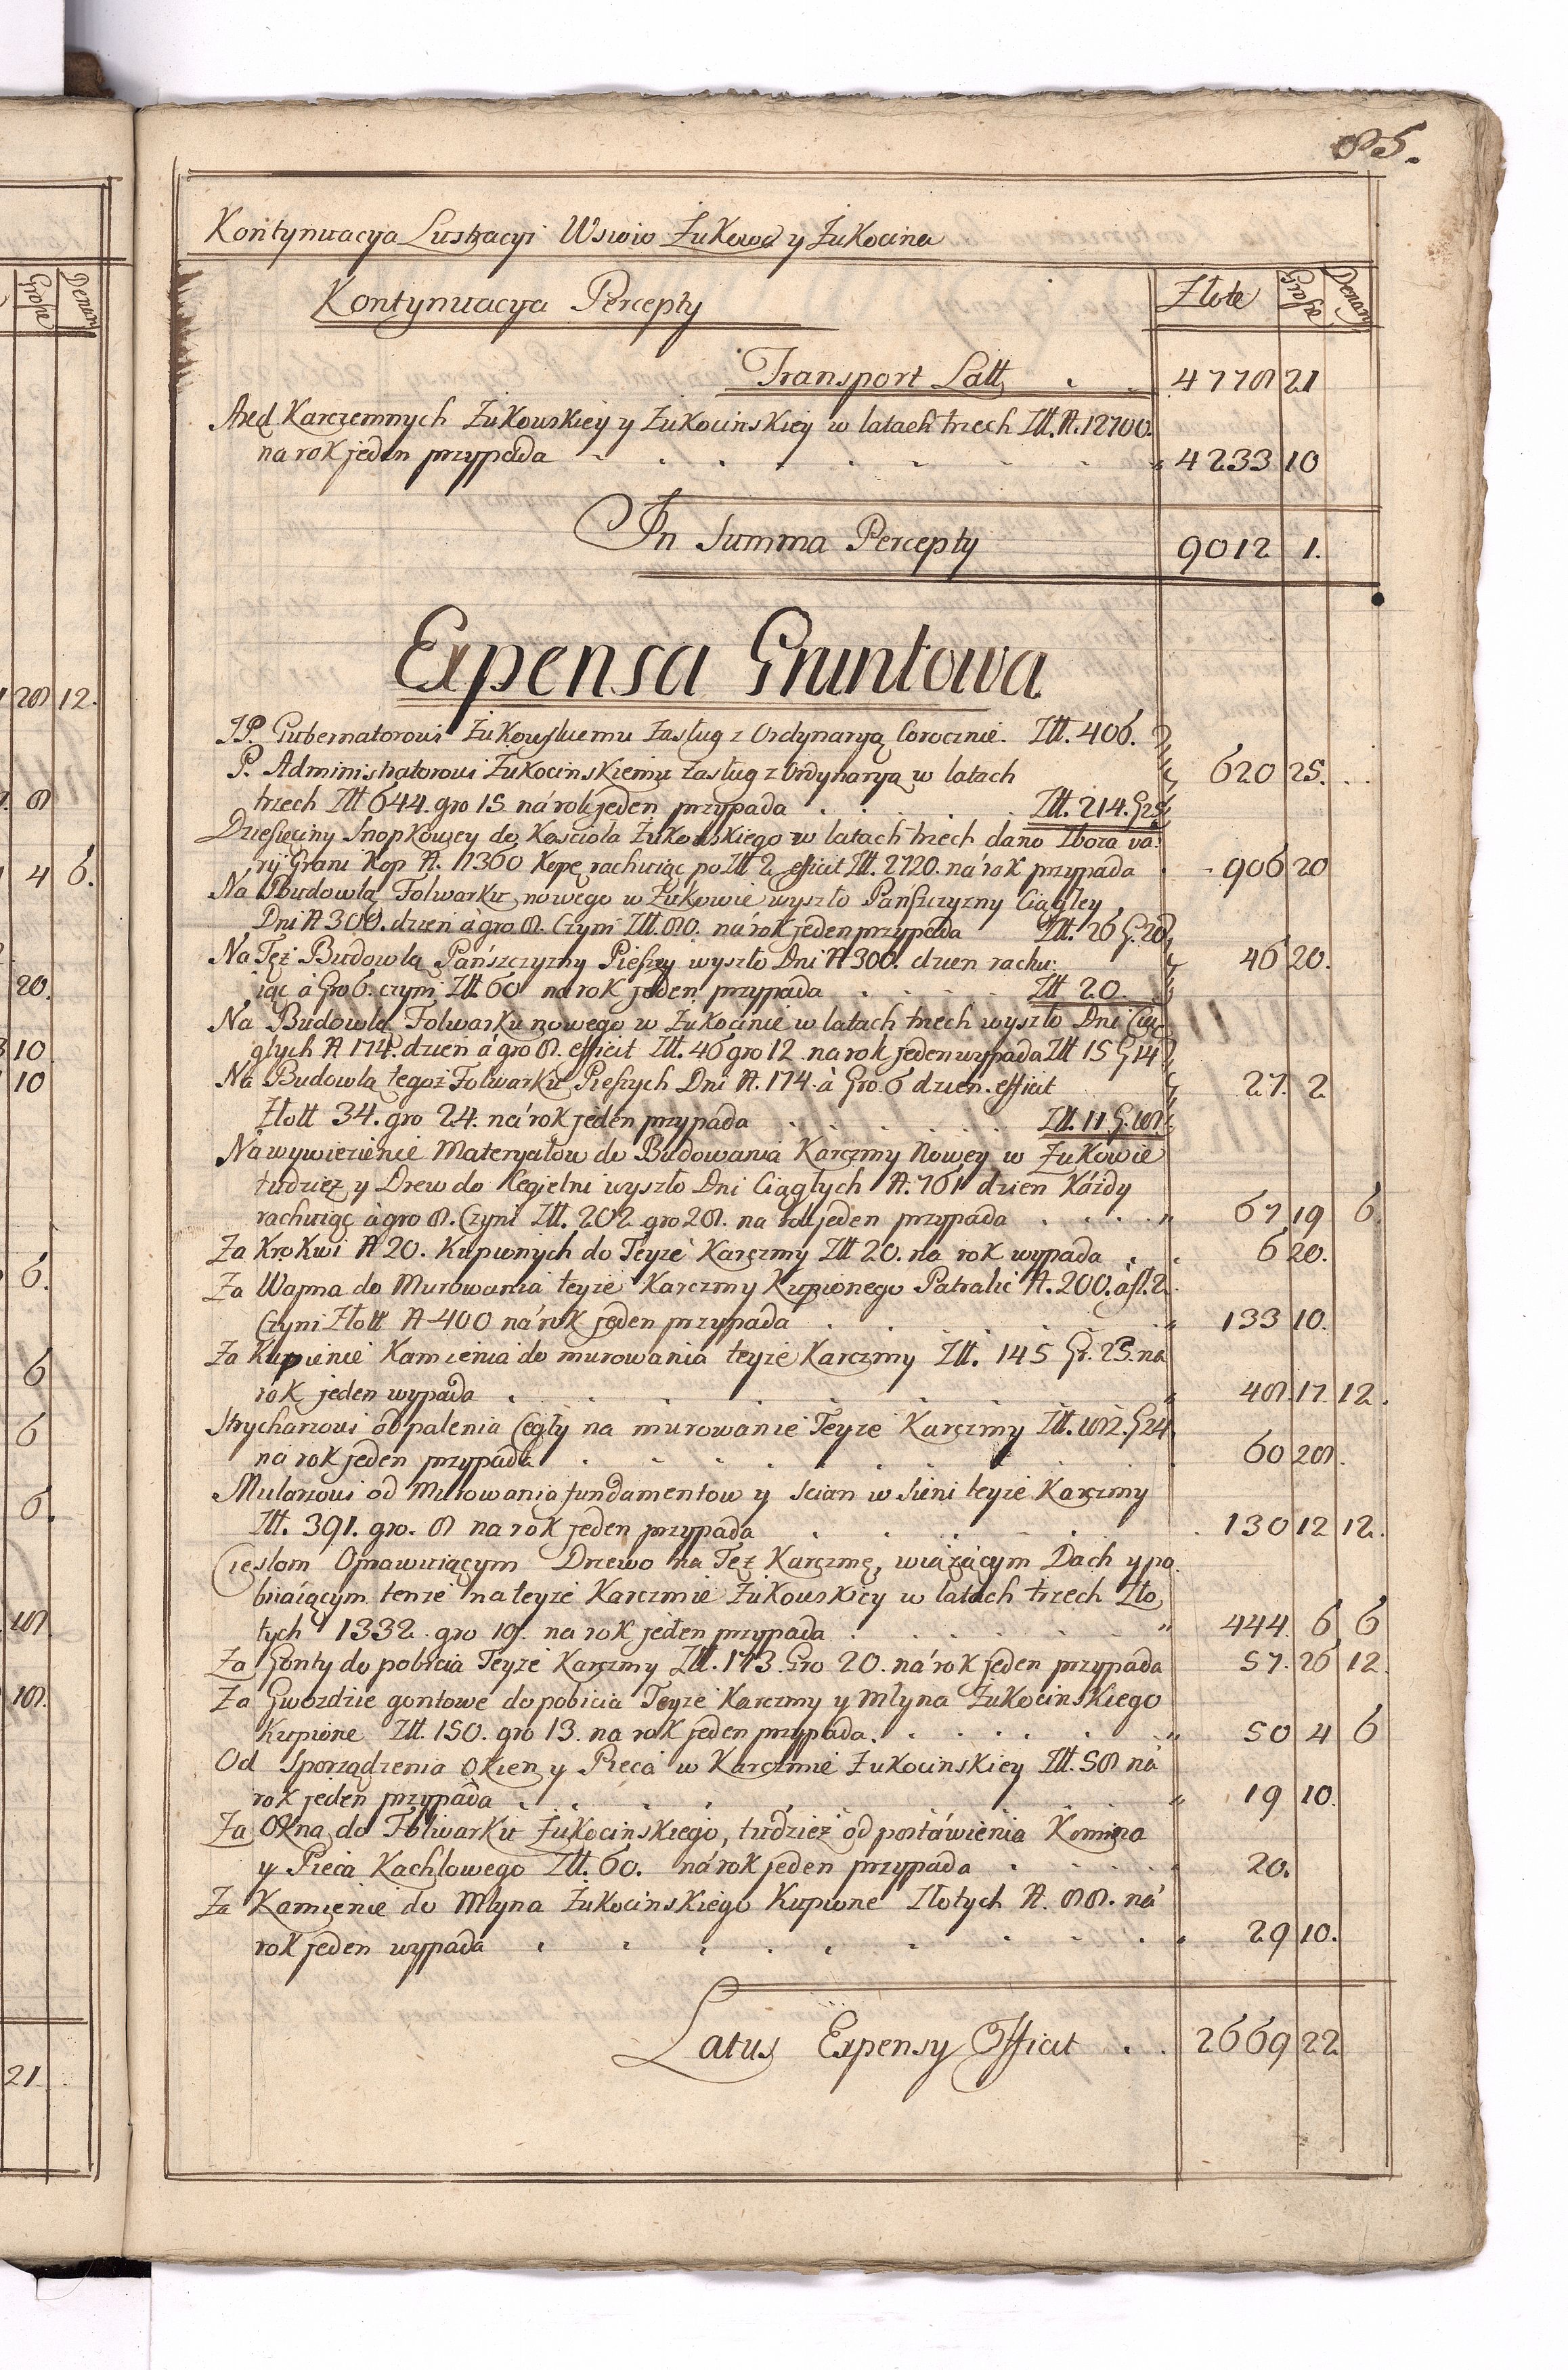 Grosze
Denary
28 12.
8
4 6.
20.
10
10
6.
6
6
6.
18.
18.
21.
85.
Kontynuacya Lustracyi Wsiow Żukowa y Żukocina
Kontynuacya Percepty
Złote Grosze Denary
Transport Latt 4778 21
Aręd Karczemnych Żukowskiey y Żukocinskiey w latach trzech Złt. N. 12700.
na rok jeden przypada 4233 10
In Summa Percepty 9012 1.
Expensa Gruntowa
JP. Gubernatorowi Żukowskiemu Zasług z Ordynaryą Corocznie. Złt. 406.
P. Administratorowi Żukocinskiemu Zasług z Ordynaryą w latach 620 25.
trzech Złt 644. gro 15 ná rok jeden przypada Złt. 214. G 25
Dziesięciny Snopkowey do Kościoła Żukowskiego w latach trzech dano Zboża va:
rij Grani Kop N. 1360 Kopę rachuiąc po Złt 2 efficit Złt. 2720. ná rok przypada 906 20
Na Budowlą Folwarku nowego w Żukowie wyszło Pańszczyzny Ciągłey
Dni N 300. dzień à gro 8. Czyni Złt. 80. ná rok jeden przypada Złt. 26 G. 20
Na Też Budowlą Pánszczyzny Pieszey wyszło Dni N 300. dzien rachu: 46 20.
iąc à Gro 6. czyni Złt. 60 na rok jeden przypada Złt 20.
Na Budowlą Folwarku nowego w Żukocinie w latach trzech wyszło Dni Cią
głych N 174. dzień á gro 8. efficit Złt. 46 gro 12 na rok jeden wypada Złt 15 G 14
Na Budowlą tegoż Folwarku Pieszych Dni N. 174. à Gro. 6 dzien. efficit 27. 2
Złott 34. gro 24. ná rok jeden przypada Złt. 11 G. 18.
Na wywiezienie Materyałow do Budowania Karczmy Nowey w Żukowie
tudzież y Drew do Cegielni wyszło Dni Ciągłych N. 761 dzien Káżdy
rachuiąc à gro 8. Czyni Złt. 202 gro 28. na rok jeden przypada 67 19 6.
Za Krokwi N 20. Kupionych do Teyże Karczmy Złt 20. na rok wypada 6 20.
Za Wapna do Murowania teyże Karczmy Kupionego Patralic N. 200. á fl. 2
Czyni Złott N 400 ná rok jeden przypada 133 10.
Za Kupienie Kamienia do murowania teyże Karczmy Złt. 145 Gr. 23. na
rok jeden wypada 48. 17. 12.
Strycharzowi od palenia Cegły na murowanie Teyże Karczmy Złt. 182. G 24
na rok jeden przypada 60 28.
Mularzowi od Murowania fundamentow y ścian w Sieni teyże Karczmy
Złt. 391. gro. 8 na rok jeden przypada 130 12 12.
Cieslom Oprawuiącym Drzewo na Też Karczmę, wiążącym Dach y po
biiaiącym tenże na teyże Karczmie Żukowskiey w latach trzech Zło
tych 1332. gro 19. na rok jeden przypada 444 6 6
Za Gonty do pobicia Teyże Karczmy Złt. 173. Gro 20. ná rok jeden przypada 57. 26 12.
Za Gwozdzie gontowe do pobicia Teyże Karczmy y Młyna Żukocinskiego
Kupione Złt. 150. gro 13. na rok jeden przypada. 50 4 6
Od Sporządzenia Okien y Pieca w Karczmie Żukocinskiey Złt. 58 ná
rok jeden przypada 19 10.
Za Okna do Folwarku Żukocinskiego, tudzież od postáwienia Komina
y Pieca Kachlowego Złt. 60. ná rok jeden przypada 20.
Za Kamienie do Młyna Żukocinskiego Kupione Złotych N. 88. ná
rok jeden wypada 29 10.
Latus Expensy Efficit 2669 22